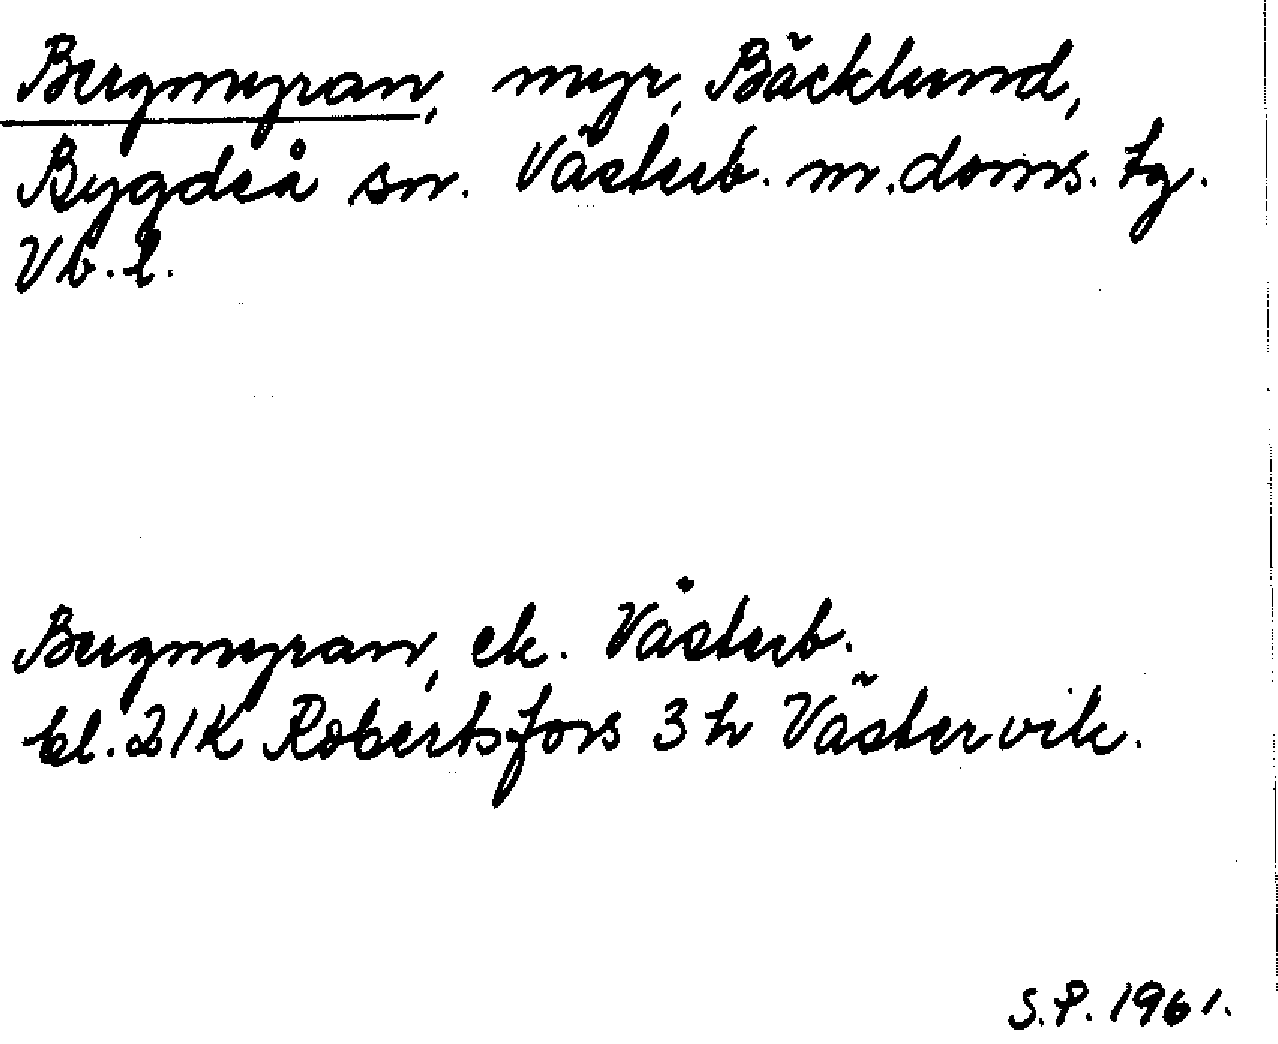 Bergmyran, myr, Bäcklund,
Bygdeå sn. Västerb. m. doms. tg.
Vb. l.
Bergmyran, ek. Västerb.
bl. 21K Robertsfors 3 h Västervik.
S.P. 1961.